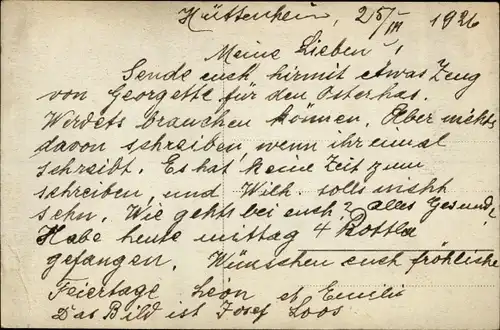 Hüttenheim, 25/III 1926
Meine Lieben!
Sende euch hirmit etwas Zeug
von Georgette für den Osterhas.
Wirdets brauchen können. Aber nichts
davon schreiben, wenn ihr einmal
schreibt. Es hat keine Zeit zum
schreiben, und Wilh. solls nicht
sehn. Wie gehts bei euch? alles Gesund,
Habe heute mittag 4 Rottla
gefangen. Wünschen euch fröhliche
Feiertage Leon et Emilie
Das Bild ist Josef Loos